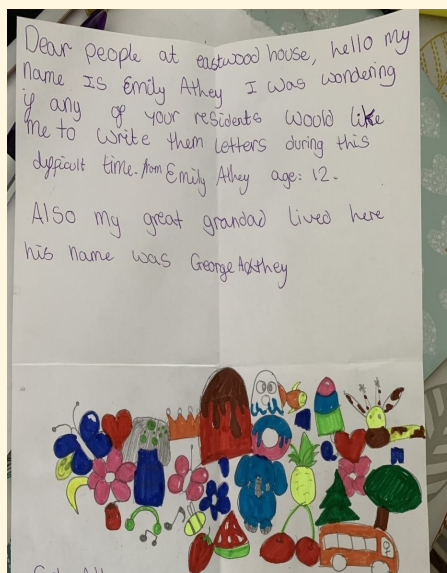 Dear people at eastwood house, hello my
name IS Emily Athey I was wondering
if any of your residents would like
me to write them letters during this
difficult time. from Emily Athey age: 12.
Also my great grandad lived here
his name was George